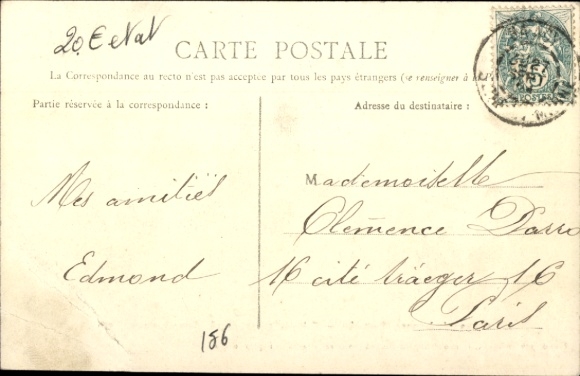 CARTE POSTALE
La Correspondance au recto n'est pas acceptée par tous les pays étrangers (se renseigner à
Partie réservée à la correspondance :
Adresse du destinataire :
Mes amitiés
Edmond
Mademoiselle
Clémence Darro
16 cité tráeger 16
Paris
186